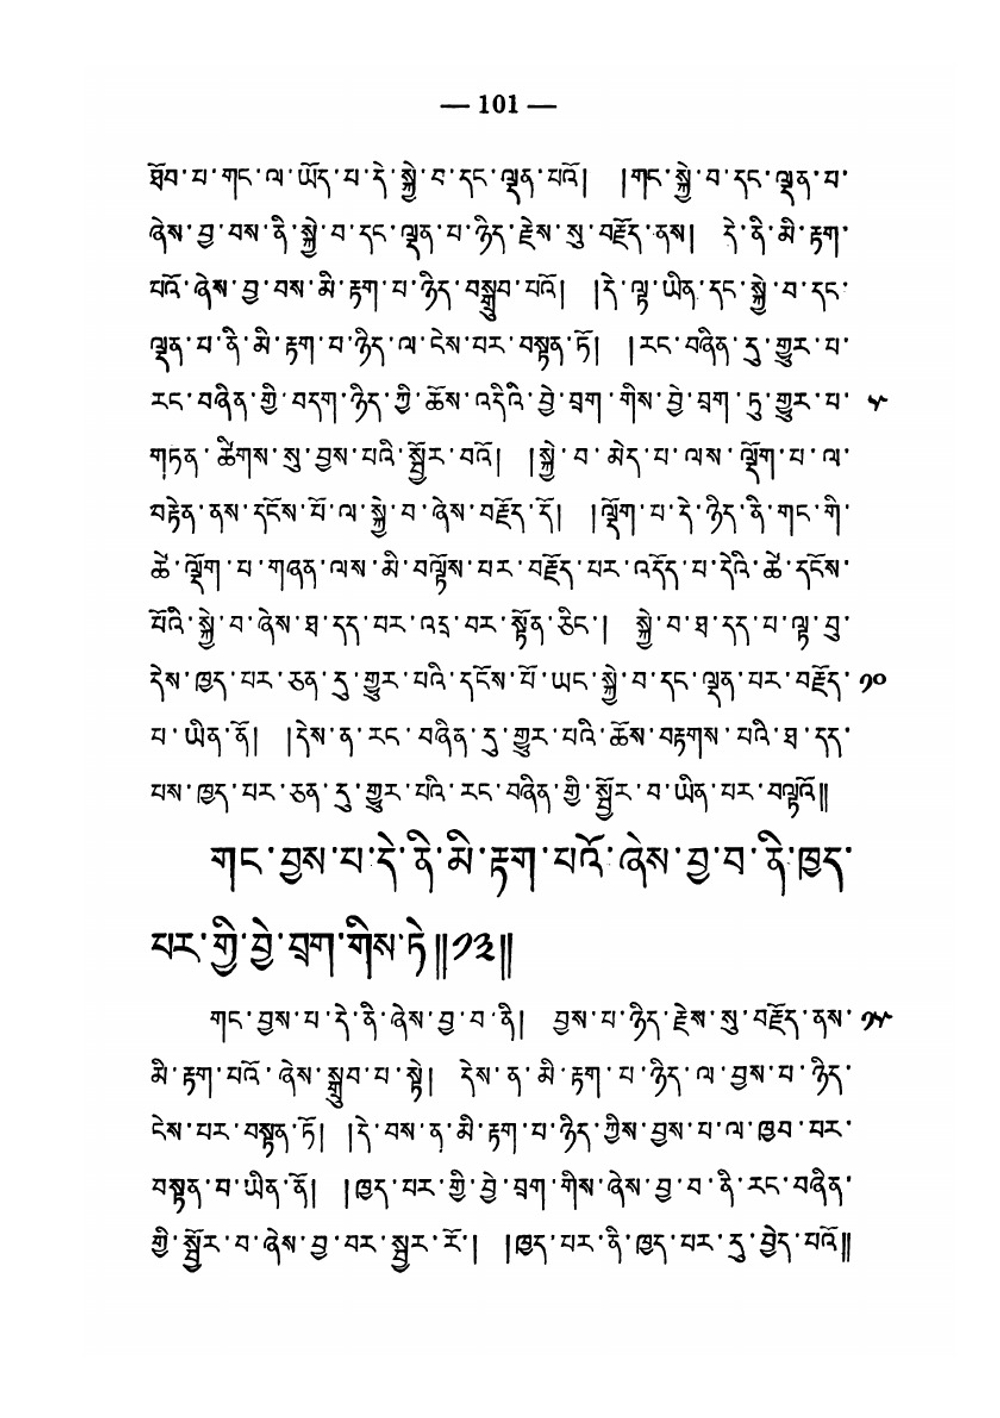 — 101 —
ཐོབ་པ་གང་ལ་ཡོད་པ་དེ་སྐྱེ་བ་དང་ལྡན་པའོ། །གང་སྐྱེ་བ་དང་ལྡན་པ་
ཞེས་བྱ་བས་ནི་སྐྱེ་བ་དང་ལྡན་པ་ཉིད་རྗེས་སུ་བརྗོད་ནས། དེ་ནི་མི་རྟག་
པའོ་ཞེས་བྱ་བས་མི་རྟག་པ་ཉིད་བསྒྲུབ་པའོ། །དེ་ལྟ་ཡིན་དང་སྐྱེ་བ་དང་
ལྡན་པ་ནི་མི་རྟག་པ་ཉིད་ལ་ངེས་པར་བསྟན་ཏོ། །རང་བཞིན་དུ་གྱུར་པ་
རང་བཞིན་གྱི་བདག་ཉིད་ཀྱི་ཆོས་འདིའི་བྱེ་བྲག་གིས་བྱེ་བྲག་ཏུ་གྱུར་པ་ ༥
གཏན་ཚིགས་སུ་བྱས་པའི་སྦྱོར་བའོ། །སྐྱེ་བ་མེད་པ་ལས་ལྡོག་པ་ལ་
བརྟེན་ནས་དངོས་པོ་ལ་སྐྱེ་བ་ཞེས་བརྗོད་དོ། །ལྡོག་པ་དེ་ཉིད་ནི་གང་གི་
ཚེ་ལྡོག་པ་གཞན་ལས་མི་བལྟོས་པར་བརྗོད་པར་འདོད་པ་དེའི་ཚེ་དངོས་
པོའི་སྐྱེ་བ་ཞེས་ཐ་དད་པར་འདྲ་བར་སྟོན་ཅིང་། སྐྱེ་བ་ཐ་དད་པ་ལྟ་བུ་
དེས་ཁྱད་པར་ཅན་དུ་གྱུར་པའི་དངོས་པོ་ཡང་སྐྱེ་བ་དང་ལྡན་པར་བརྗོད་ ༡༠
པ་ཡིན་ནོ། །དེས་ན་རང་བཞིན་དུ་གྱུར་པའི་ཆོས་བརྟགས་པའི་ཐ་དད་
པས་ཁྱད་པར་ཅན་དུ་གྱུར་པའི་རང་བཞིན་གྱི་སྦྱོར་བ་ཡིན་པར་བལྟའོ༎
གང་བྱས་པ་དེ་ནི་མི་རྟག་པའོ་ཞེས་བྱ་བ་ནི་ཁྱད་
པར་གྱི་བྱེ་བྲག་གིས་ཏེ༎༡༣༎
གང་བྱས་པ་དེ་ནི་ཞེས་བྱ་བ་ནི། བྱས་པ་ཉིད་རྗེས་སུ་བརྗོད་ནས་ ༡༥
མི་རྟག་པའོ་ཞེས་སྒྲུབ་པ་སྟེ། དེས་ན་མི་རྟག་པ་ཉིད་ལ་བྱས་པ་ཉིད་
ངེས་པར་བསྟན་ཏོ། །དེ་བས་ན་མི་རྟག་པ་ཉིད་ཀྱིས་བྱས་པ་ལ་ཁྱབ་པར་
བསྟན་པ་ཡིན་ནོ། །ཁྱད་པར་གྱི་བྱེ་བྲག་གིས་ཞེས་བྱ་བ་ནི་རང་བཞིན་
གྱི་སྦྱོར་བ་ཞེས་བྱ་བར་སྦྱར་རོ་། །ཁྱད་པར་ནི་ཁྱད་པར་དུ་བྱེད་པའོ༎